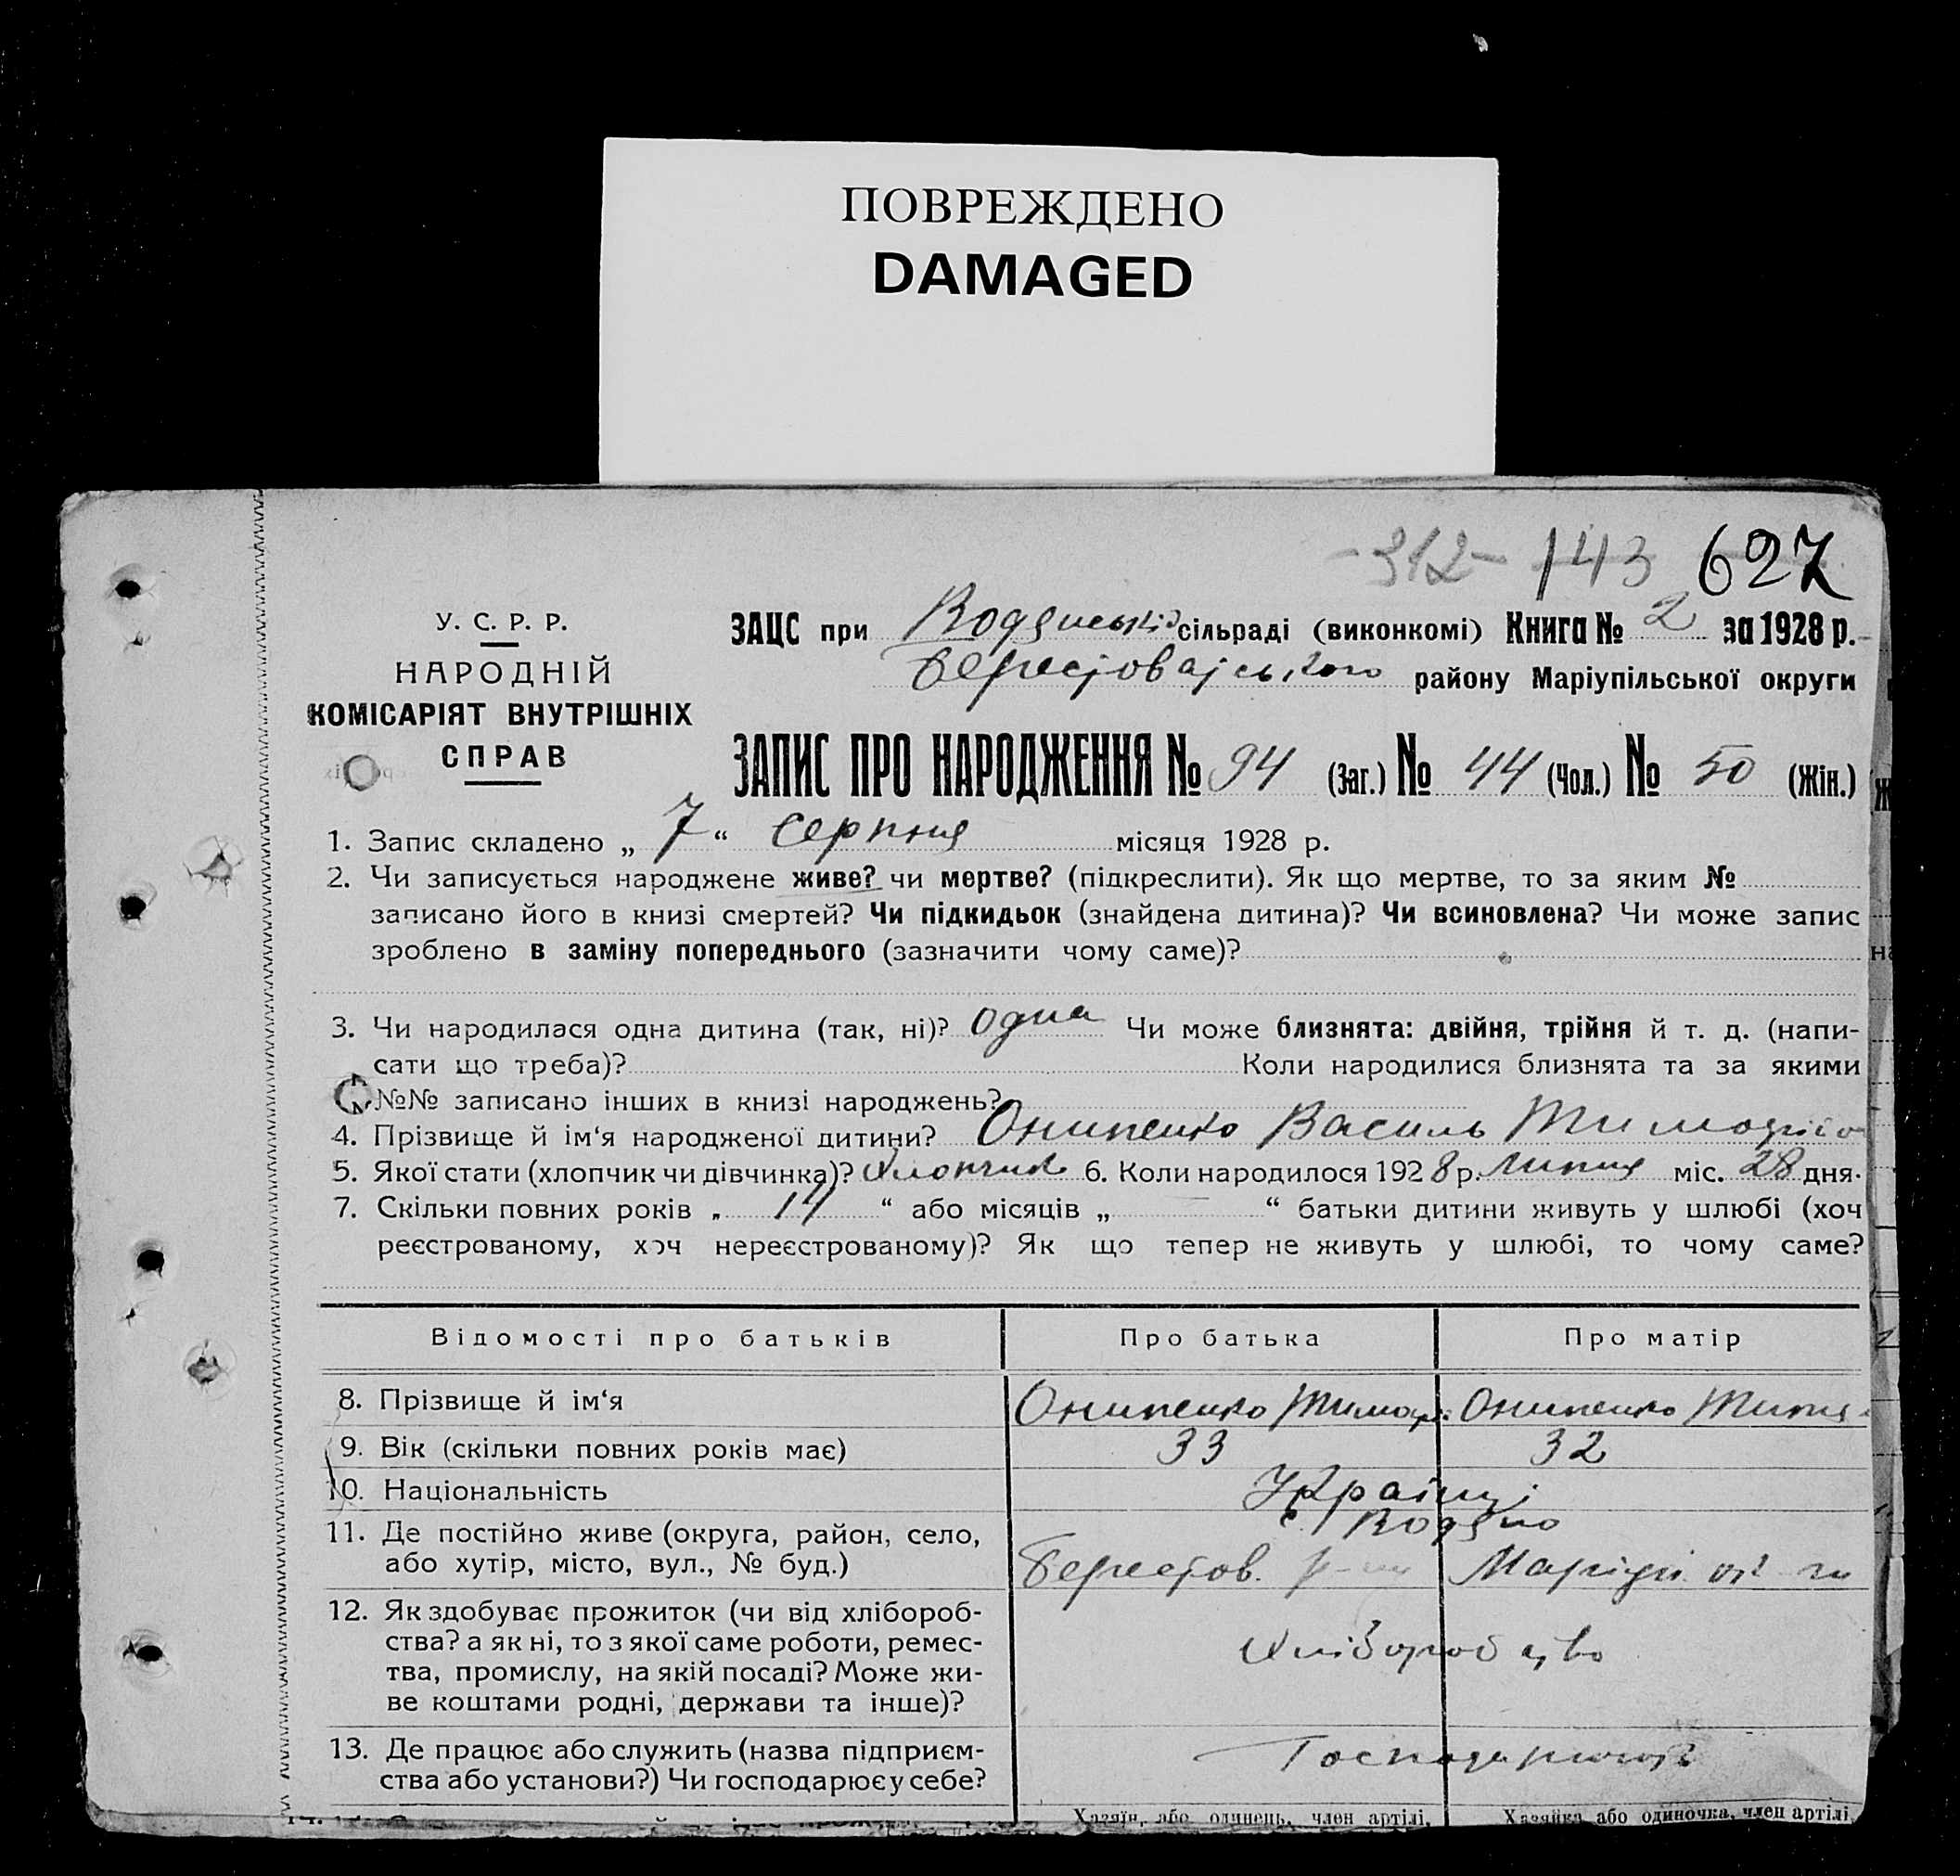 ПОВРЕЖДЕНО
DAMAGED
312 143 627
У. С. Р. Р.
НАРОДНІЙ
КОМІСАРІЯТ ВНУТРІШНІХ
СПРАВ
ЗАЦС при Водянській сільраді (виконкомі) Книга № 2 за 1928 р.
району Маріупільської округи
ЗАПИС ПРО НАРОДЖЕННЯ № 94 (Заг.) № 44 (Чол.) № 50 (Жін.)
1. Запис складено „ 7 “ серпня місяця 1928 р.
2. Чи записується народжене живе? чи мертве? (підкреслити). Як що мертве, то за яким №
записано його в книзі смертей? Чи підкидьок (знайдена дитина)? Чи всиновлена? Чи може запис
зроблено в заміну попереднього (зазначити чому саме)?
3. Чи народилася одна дитина (так, ні)? одна Чи може близнята: двійня, трійня й т. д. (напи-
сати що треба)? Коли народилися близнята та за якими
№№ записано інших в книзі народжень?
4. Прізвище й ім‘я народженої дитини? Онипенко Василь
5. Якої стати (хлопчик чи дівчинка)? Хлопчик 6. Коли народилося 1928 р. липня міс. 28 дня.
7. Скільки повних років „ 14 “ або місяців „ — “ батьки дитини живуть у шлюбі (хоч
реєстрованому, хоч нереєстрованому)? Як що тепер не живуть у шлюбі, то чому саме?
Відомості про батьків Про батька Про матір
8. Прізвище й ім‘я Онипенко Онипенко
9. Вік (скільки повних років має) 33 32
10. Національність Українці
11. Де постійно живе (округа, район, село, Водяно
або хутір, місто, вул., № буд.) Берестов. р-ну
12. Як здобуває прожиток (чи від хлібороб-
ства? а як ні, то з якої саме роботи, ремес- Хліборобство
тва, промислу, на якій посаді? Може жи-
ве коштами родні, держави та інше)?
13. Де працює або служить (назва підприєм-
ства або установи?) Чи господарює у себе?
Хазяїн, або одинець, член артілі, Хазяйка або одиночка, член артілі